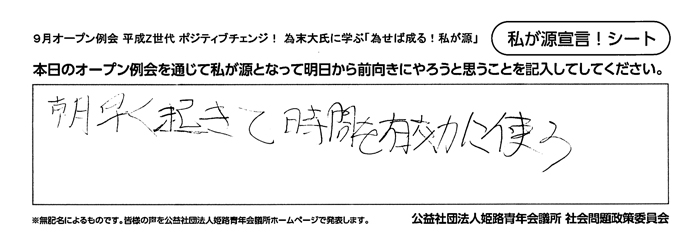 9月オープン例会 平成Z世代 ポジティブチェンジ! 為末大氏に学ぶ「為せば成る!私が源」
私が源宣言!シート
本日のオープン例会を通じて私が源となって明日から前向きにやろうと思うことを記入してしてください。
朝早く起きて時間を有効に使う
※無記名によるものです。皆様の声を公益社団法人姫路青年会議所ホームページで発表します。
公益社団法人姫路青年会議所 社会問題政策委員会